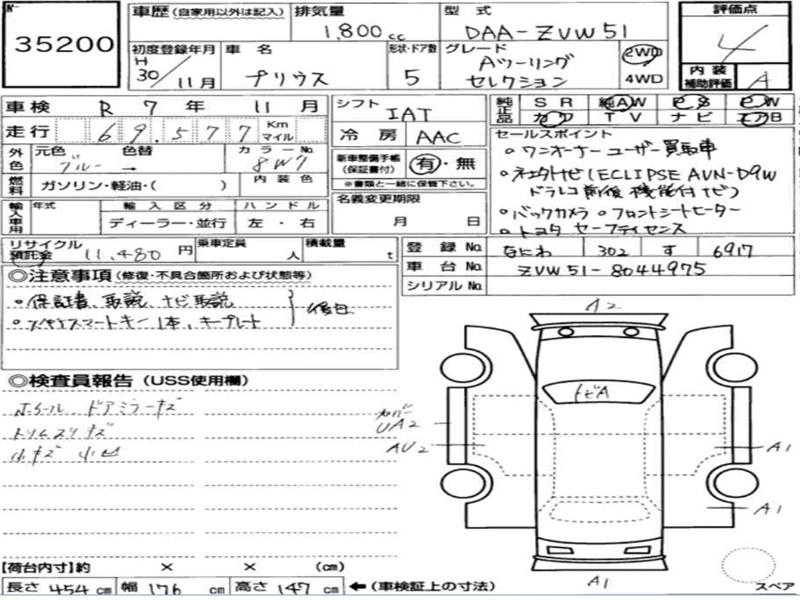 35200
車歴(自家用以外は記入) 排気量 1,800cc 型式 DAA-ZVW51 評価点 4
初度登録年月 H30/11月 車名 プリウス 形状・ドア数 5 グレード Aツーリングセレクション 2WD 4WD 内装補助評価 A
車検 R 7年 11月 シフト IAT 純正品 SR 純AW PS PW
走行 69,577 Km マイル 冷房 AAC カワ TV ナビ エアB
外色 元色 ブルー → 色替 カラーNo. 8W7 新車整備手帳(保証書付) 有・無 ※書類と一緒に保管下さい。
セールスポイント
○ワンオーナーユーザー買取車
○ネオ外ナビ(ECLIPSE AVN-D9W
ドラレコ前後機能付ナビ)
○バックカメラ ○フロントシートヒーター
○トヨタ セーフティセンス
燃料 ガソリン・軽油・( ) 内装色
輸入車用 年式 輸入区分 ディーラー・並行 ハンドル 左・右 名義変更期限 月 日
リサイクル預託金 11,480円 乗車定員 人 積載量 t
登録No. なにわ 302 す 6917
車台No. ZVW51-8044975
シリアルNo.
◎注意事項(修復・不具合箇所および状態等)
○保証書、取説、ナビ取説
○スペアスマートキー1本、キープレート 後日
◎検査員報告(USS使用欄)
ホイール、ドアミラーキズ
トリムスリキズ
小キズ 小凹
A2
トビA
カバー
UA2
AU2
A1
A1
A1
スペア
【荷台内寸】約 × × (cm)
長さ 454cm 幅 176cm 高さ 147cm ←(車検証上の寸法)